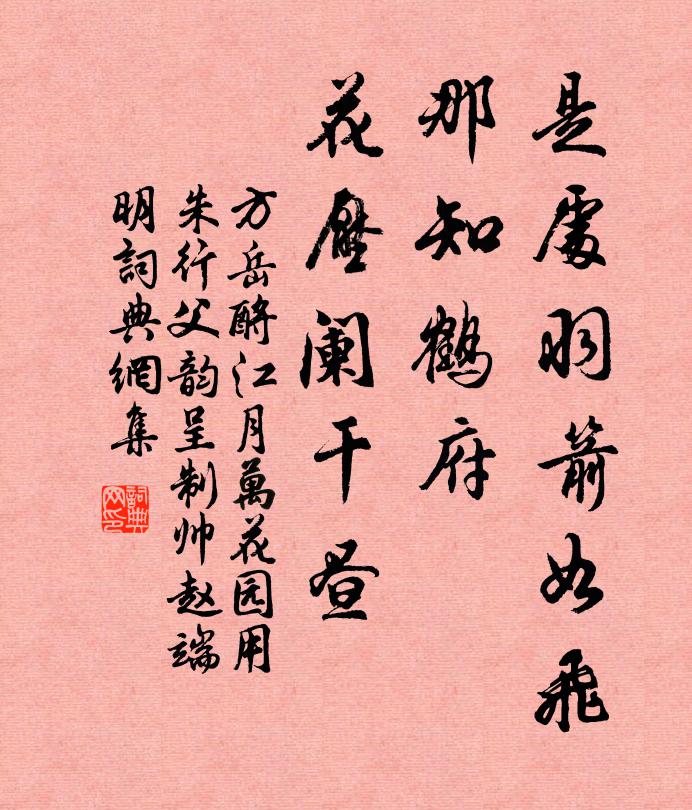 是處羽箭如飛
那知鶴府
花壓阑干晝
方岳酹江月萬花园用
朱行父韵呈制帅赵端
明詞典網集
詞典网印